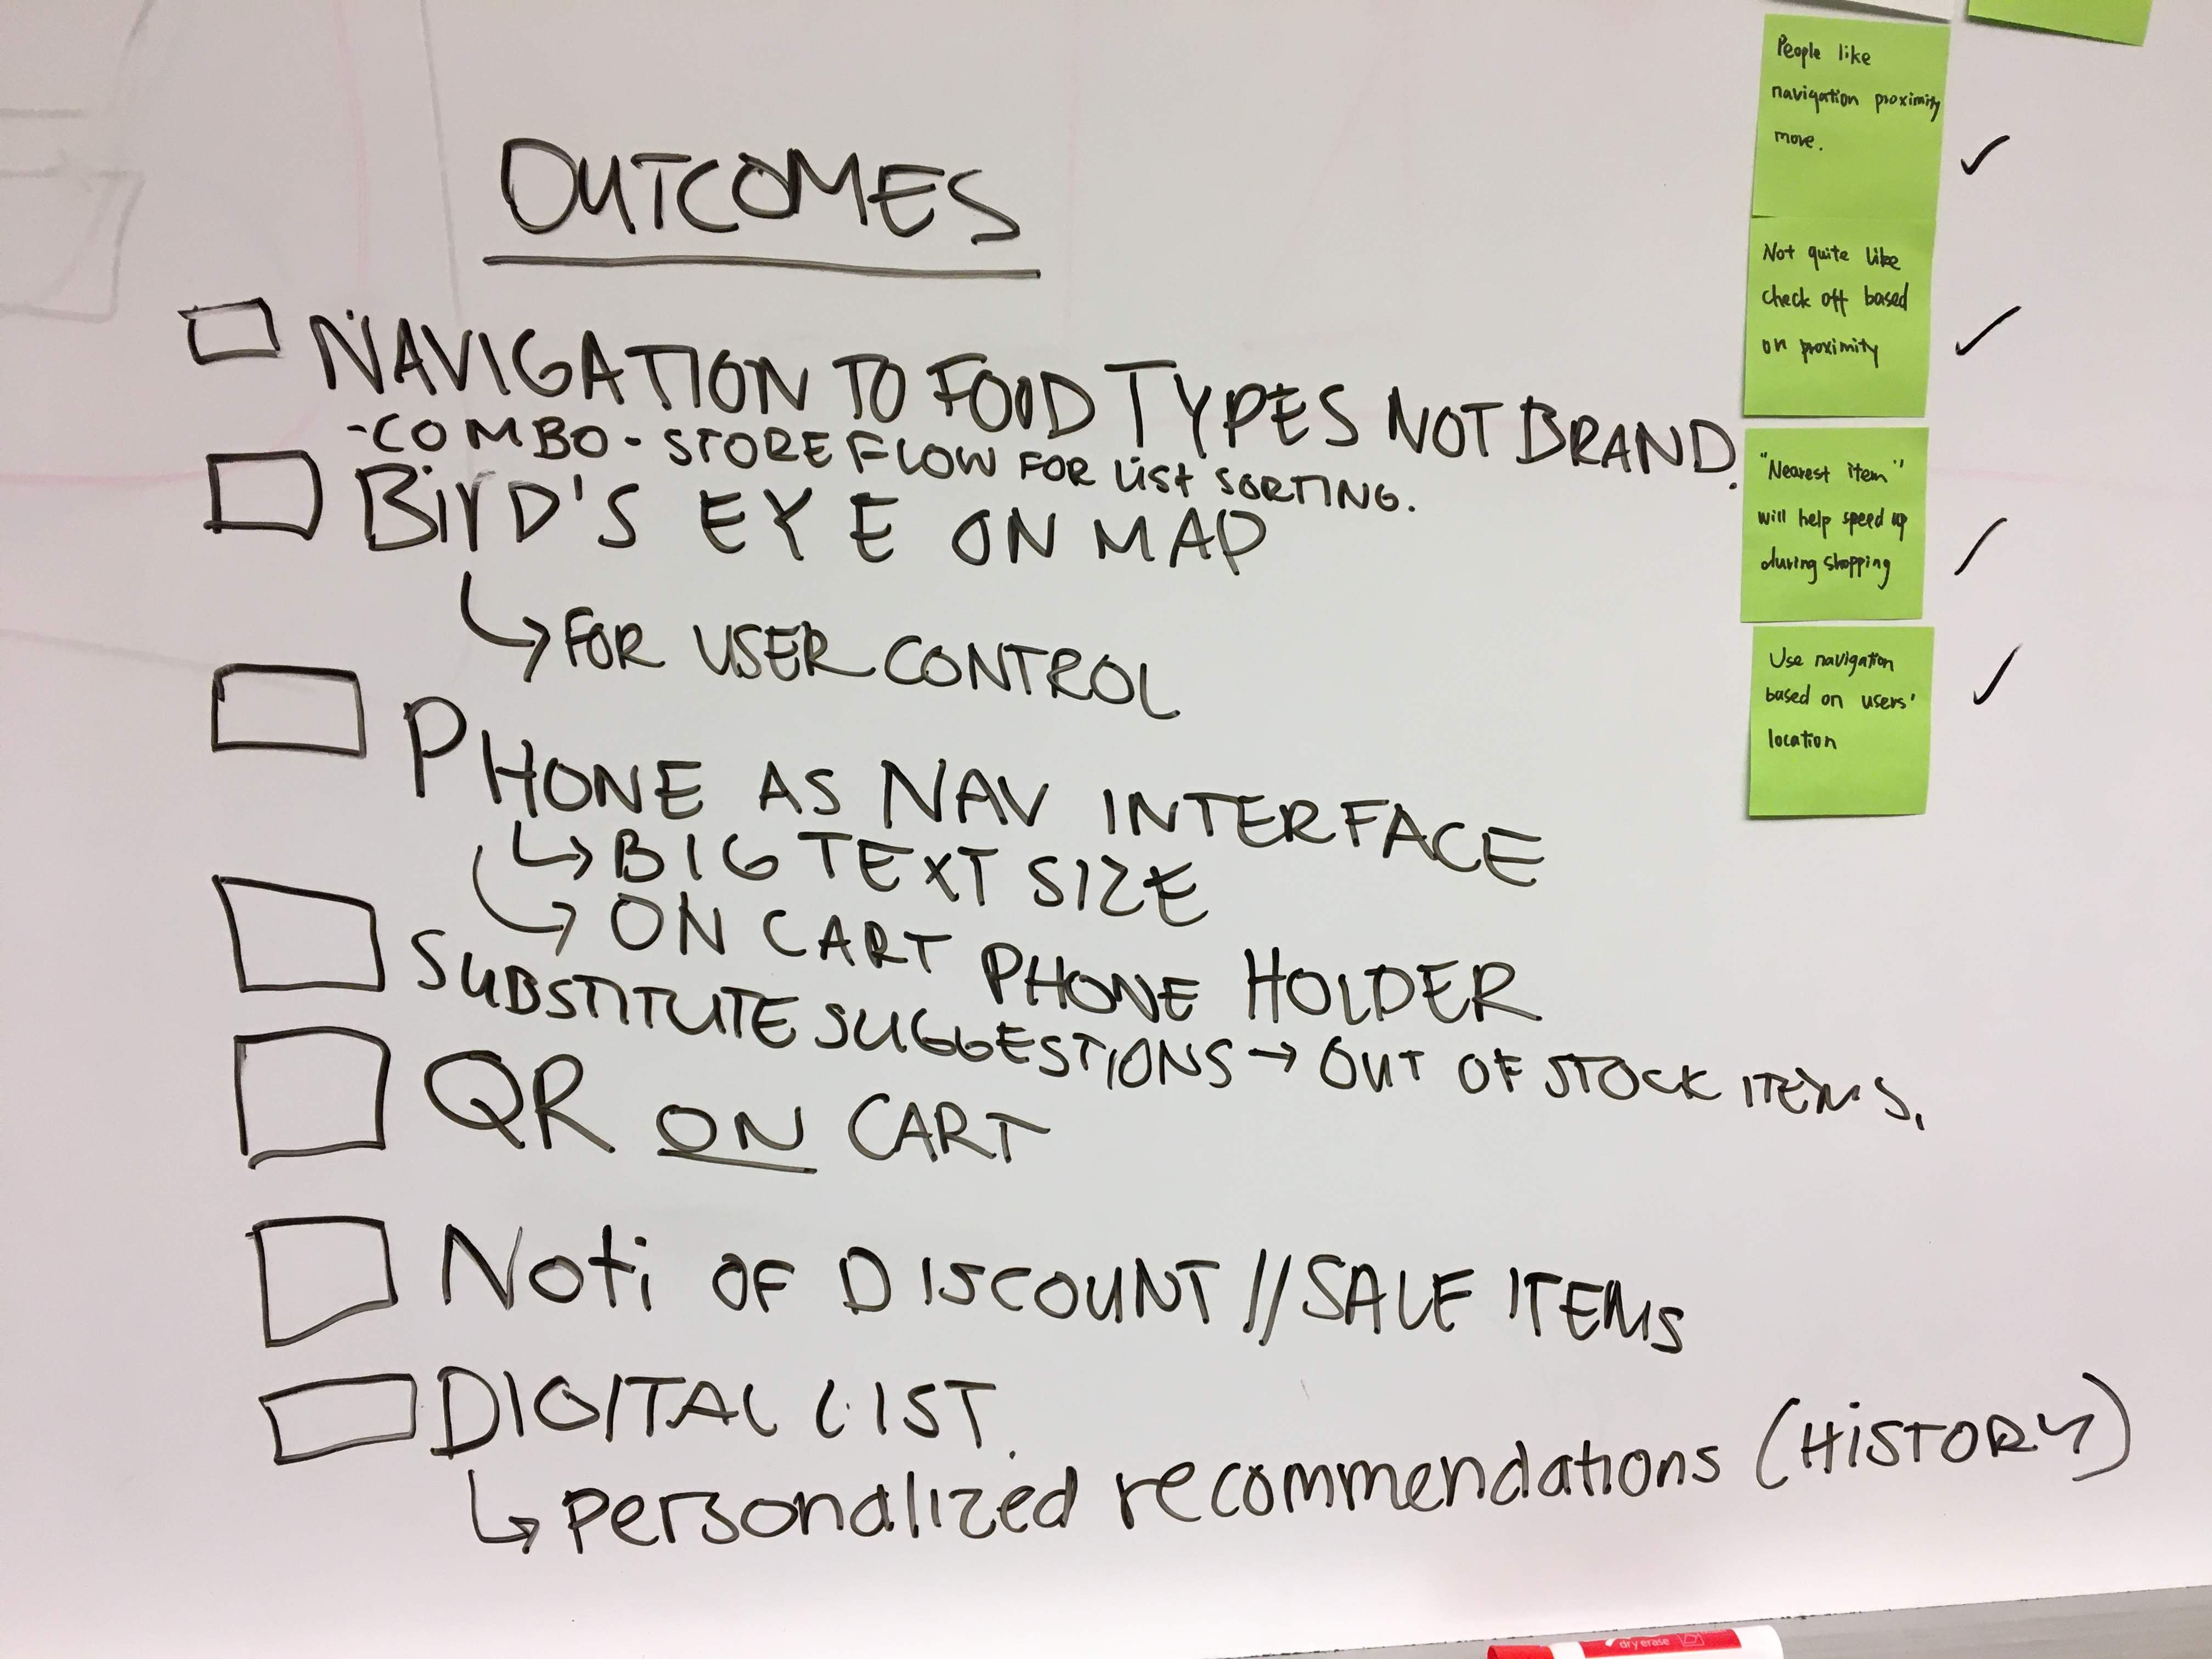 OUTCOMES
NAVIGATION TO FOOD TYPES NOT BRAND.
-COMBO - STORE FLOW FOR LIST SORTING.
BIRD'S EYE ON MAP
↳ FOR USER CONTROL
PHONE AS NAV INTERFACE
↳ BIG TEXT SIZE
↳ ON CART PHONE HOLDER
SUBSTITUTE SUGGESTIONS → OUT OF STOCK ITEMS.
QR ON CART
Noti OF DISCOUNT // SALE ITEMS
DIGITAL LIST.
↳ personalized recommendations (HISTORY)
People like
navigation proximity
more.
Not quite like
check off based
on proximity
"Nearest item"
will help speed up
during shopping
Use navigation
based on users'
location
dry erase